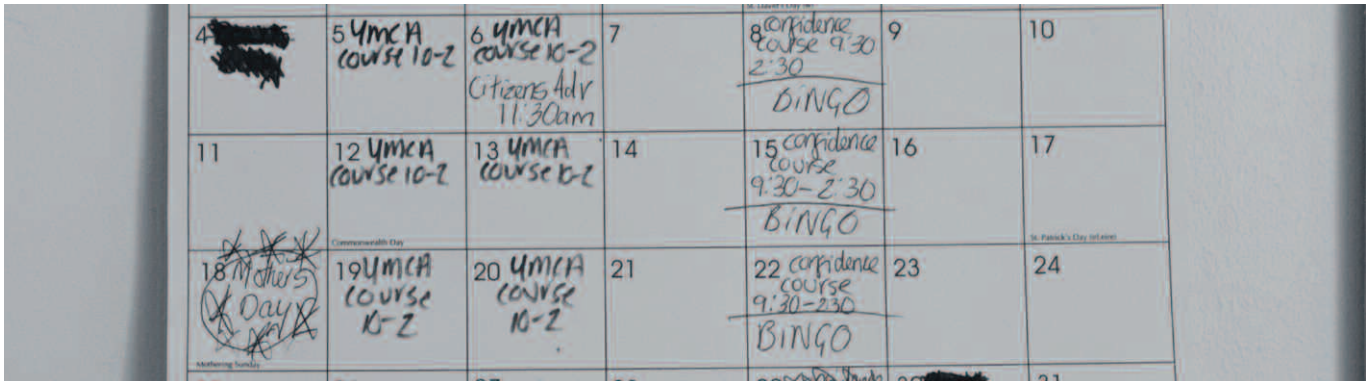 4
5 YMCA
course 10-2
6 YMCA
course 10-2
Citizens Adv
11:30am
7
8 confidence
course 9:30
2:30
BiNGO
9
10
11
12 YMCA
course 10-2
Commonwealth Day
13 YMCA
course 10-2
14
15 confidence
course
9:30-2:30
BiNGO
16
17
St. Patrick's Day
18 Mothers
Day
Mothering Sunday
19 YMCA
course
10-2
20 YMCA
course
10-2
21
22 confidence
course
9:30-230
BiNGO
23
24